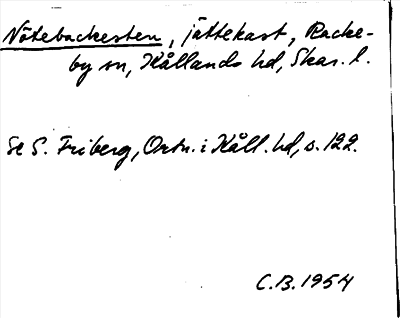 Nötebackesten, jättekast, Racke-
by sn, Kållands hd, Skar. l.
Se S. Friberg, Ortn. i Kåll. hd, s. 122.
C.B. 1954